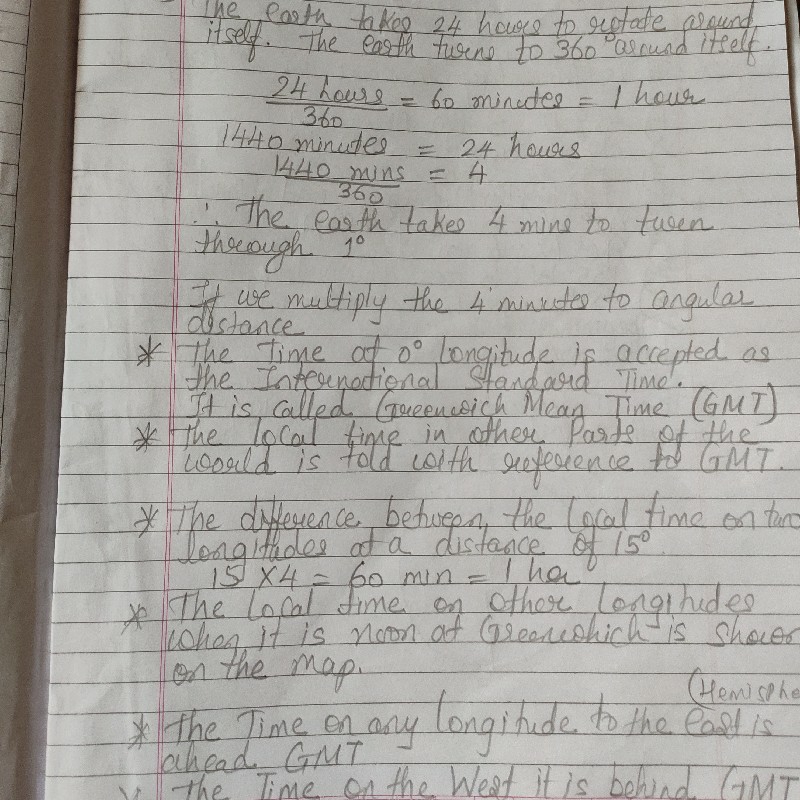 The earth takes 24 hours to rotate around
itself. The earth turns to 360° around itself.
24 hours = 60 minutes = 1 hour
360
1440 minutes = 24 hours
1440 mins = 4
360
∴ The earth takes 4 mins to turn
through 1°
If we multiply the 4 minutes to angular
distance
* The Time at 0° longitude is accepted as
the International Standard Time.
It is called Greenwich Mean Time (GMT)
* The local time in other Parts of the
world is told with reference to GMT.
* The difference between the local time on two
longitudes at a distance of 15°
15 X4 = 60 min = 1 hou
* The local time on other longitudes
when it is noon at Greenwhich is shower
on the map.
(Hemisphe
* The Time on any longitude to the East is
ahead GMT
* The Time on the West it is behind GMT